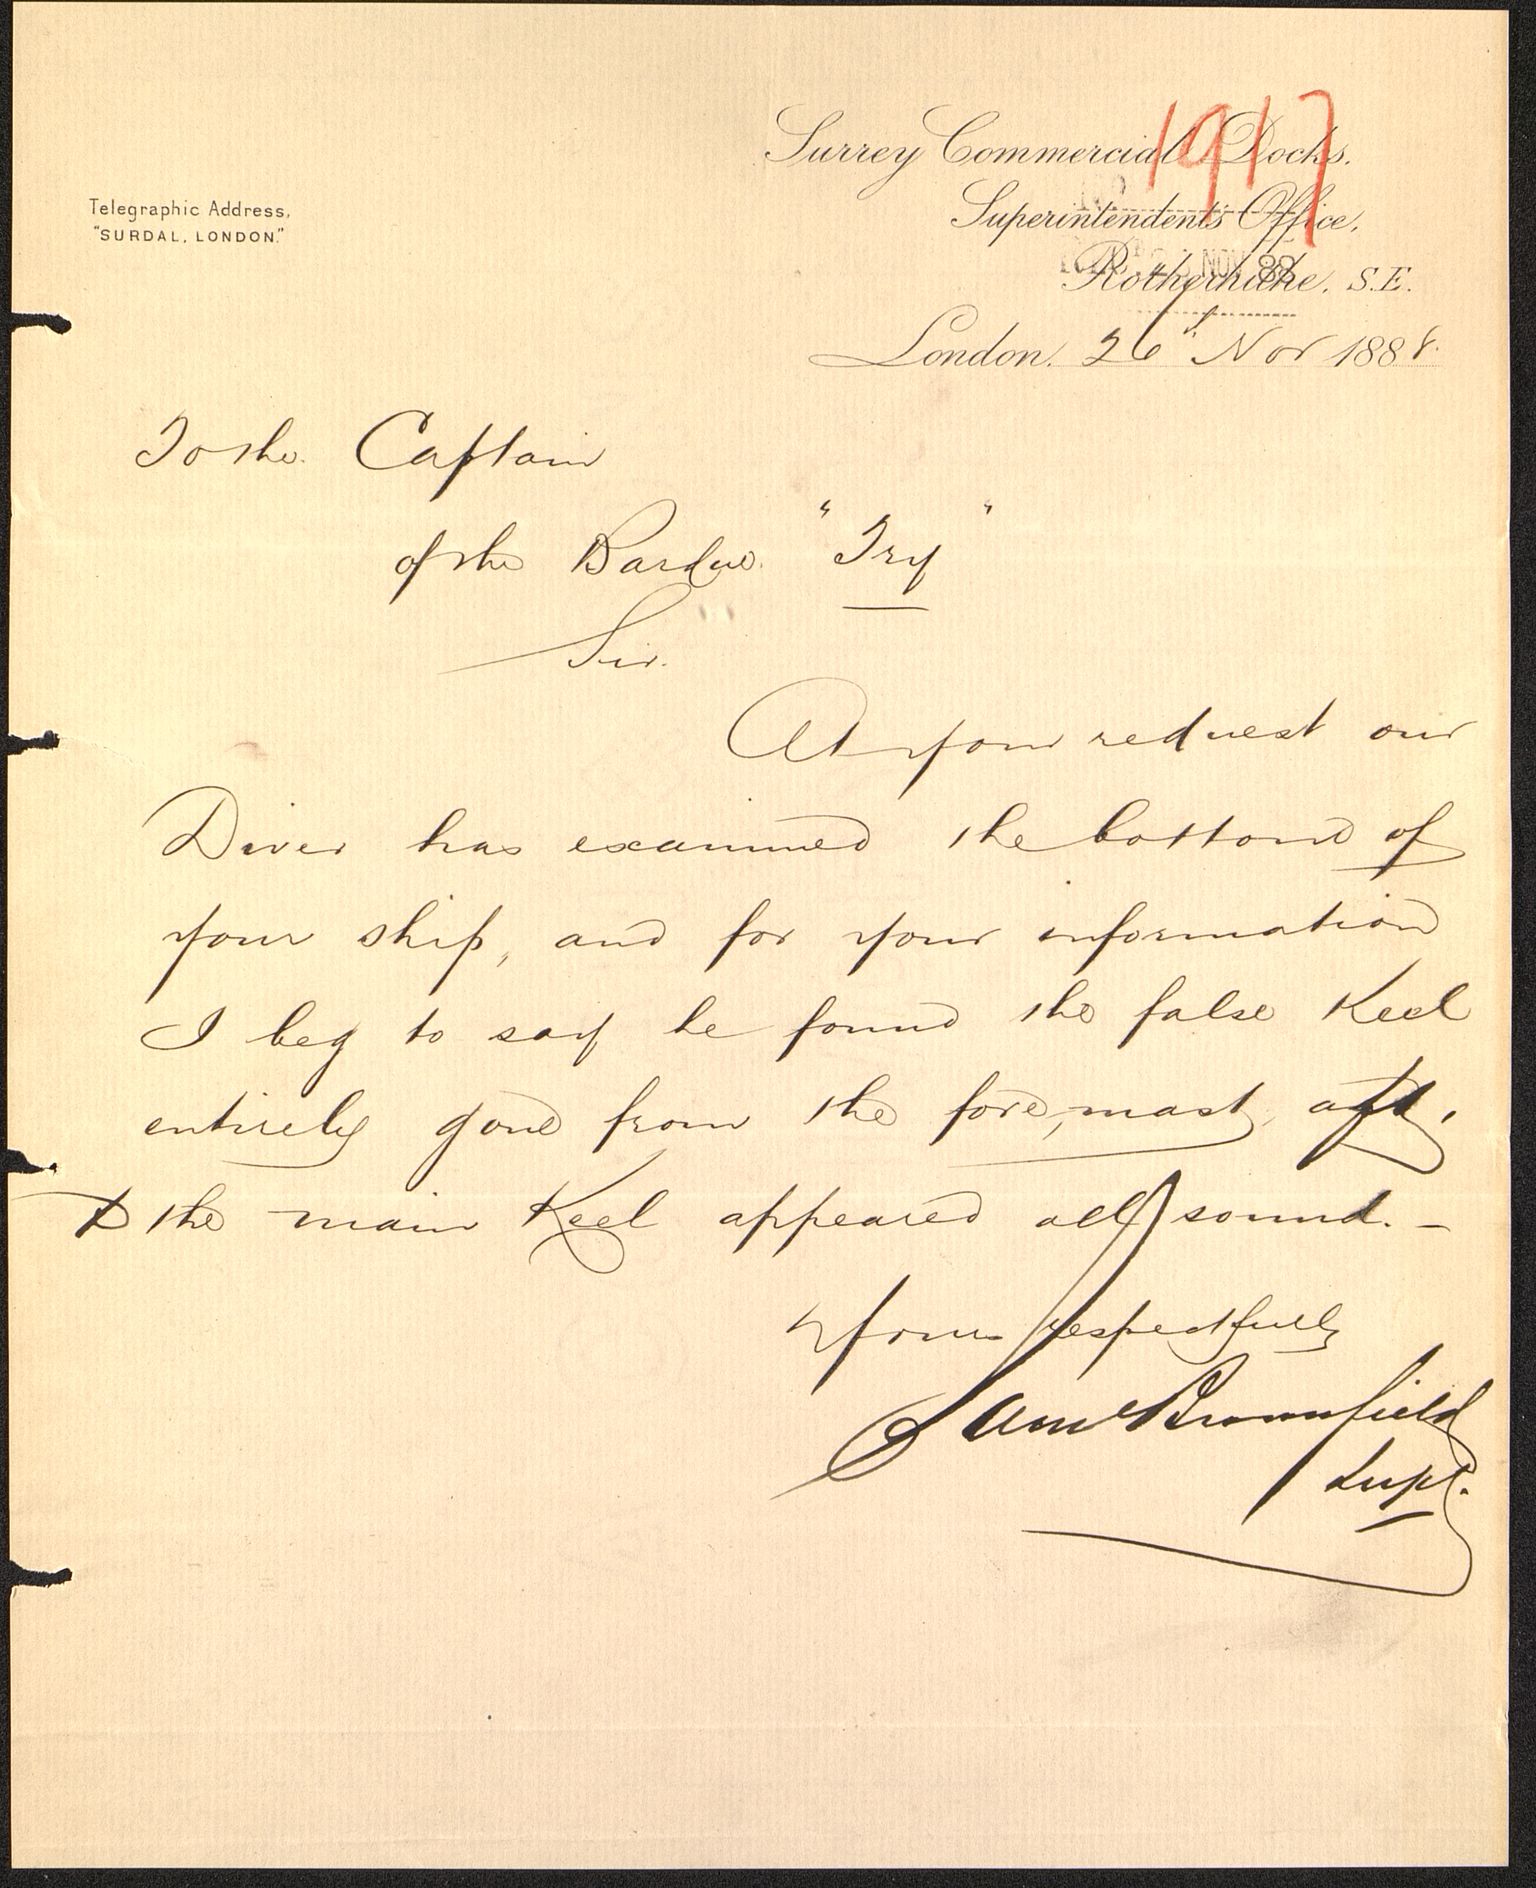 1917
Surrey Commercial Docks.
Superintendent's Office,
Rotherhithe, S.E.
Telegraphic Address,
"SURDAL, LONDON."
NOV 88
London, 26th Nov 1888.
To the Captain
of the Barque "Try"
Sir.
At your request our
Diver has examined the bottom of
your ship, and for your information
I beg to say he found the false Keel
entirely gone from the fore,mast, aft,
& the main Keel appeared all sound. —
Yours respectfully
Saml Brownfield
Supt.